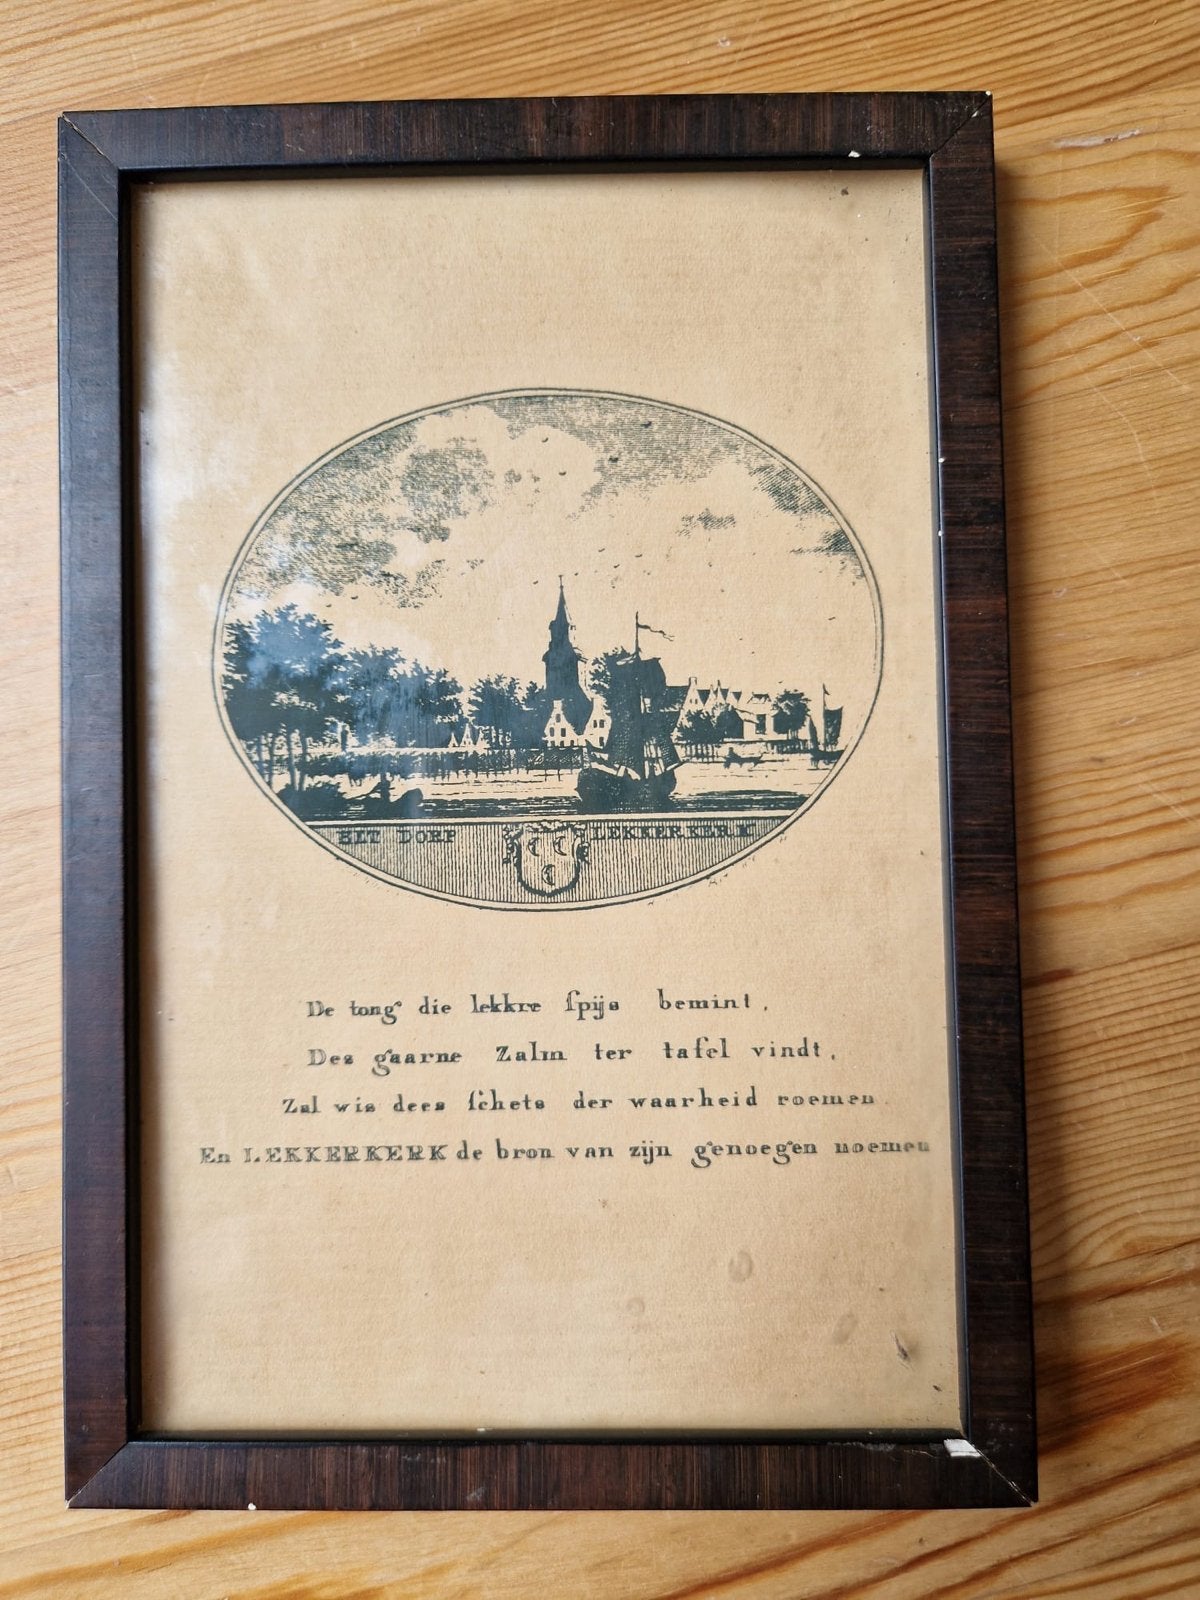 HET DORP LEKKERKERK
De tong die lekkre ſpijs bemint,
Des gaarne Zalm ter tafel vindt,
Zal wis dees ſchets der waarheid roemen
En LEKKERKERK de bron van zijn genoegen noemen